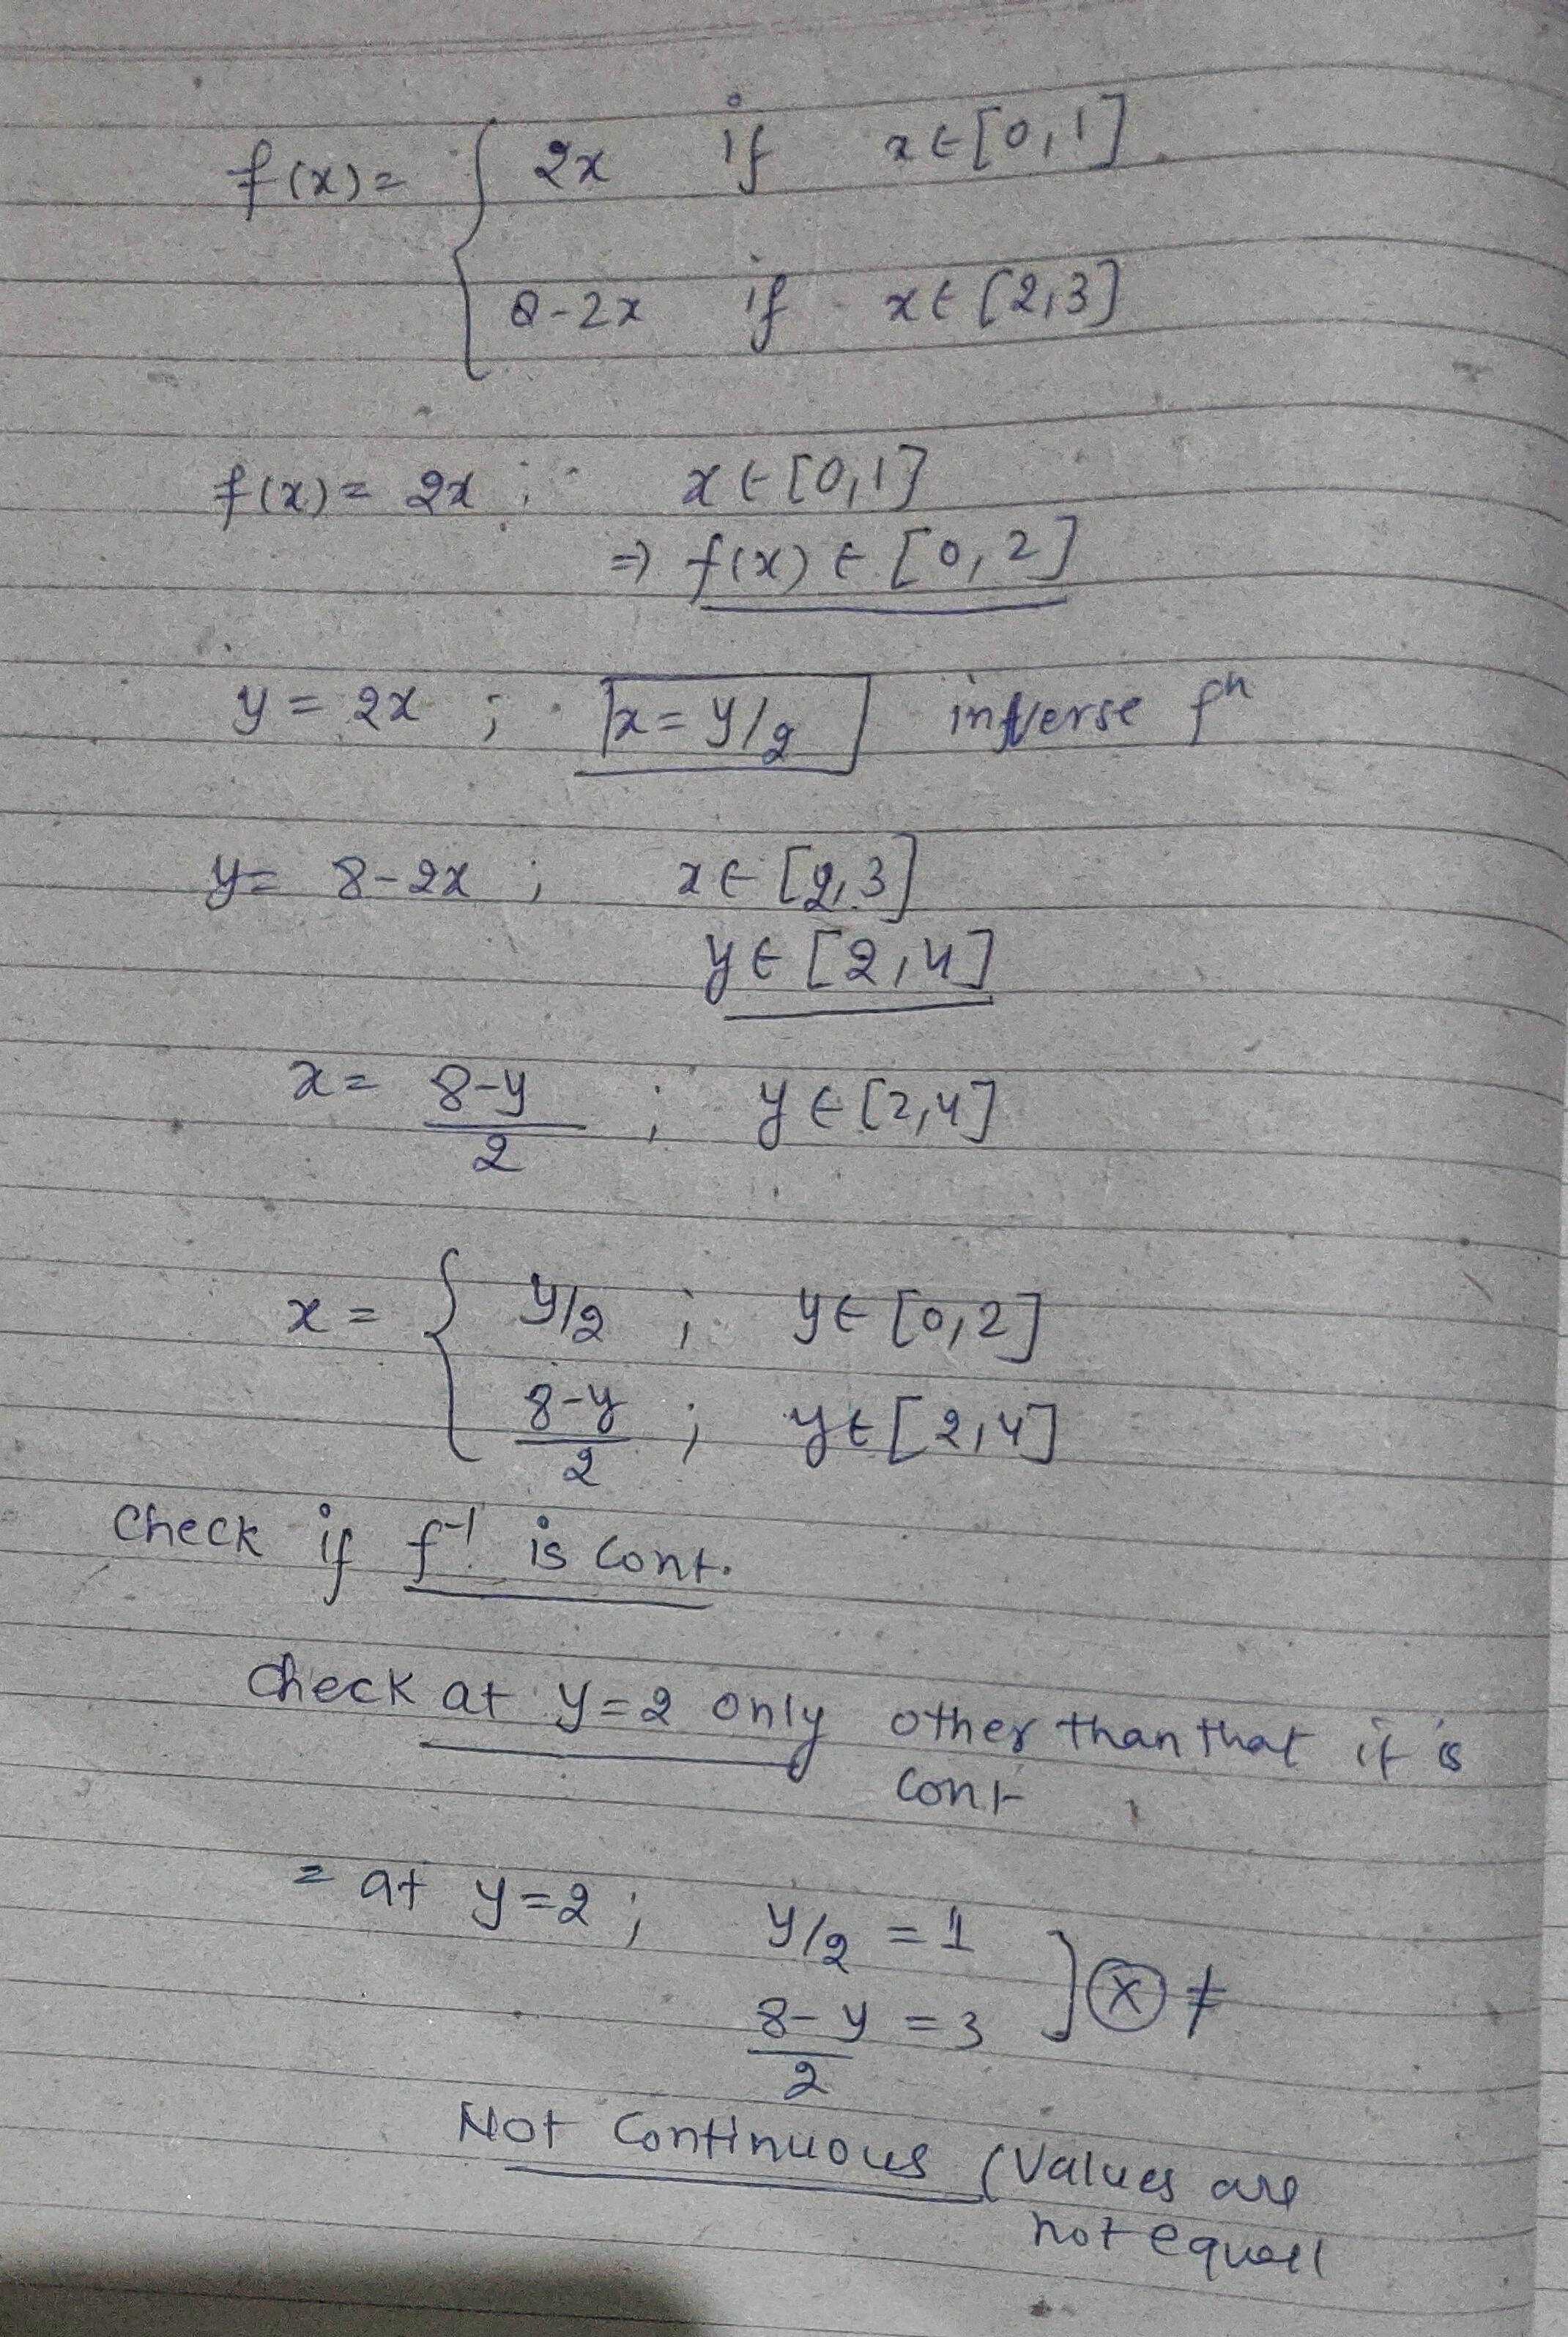 f(x) = { 2x if x ∈ [0,1]
8-2x if x ∈ [2,3]
f(x) = 2x ; x ∈ [0,1]
⇒ f(x) ∈ [0,2]
y = 2x ; x = y/2 inverse fn
y = 8-2x ; x ∈ [2,3]
y ∈ [2,4]
x = (8-y)/2 ; y ∈ [2,4]
x = { y/2 ; y ∈ [0,2]
(8-y)/2 ; y ∈ [2,4]
Check if f⁻¹ is cont.
Check at y=2 only other than that it is
cont
= at y=2 ; y/2 = 1
(8-y)/2 = 3 ] ⊗ ≠
Not Continuous (Values are
not equal